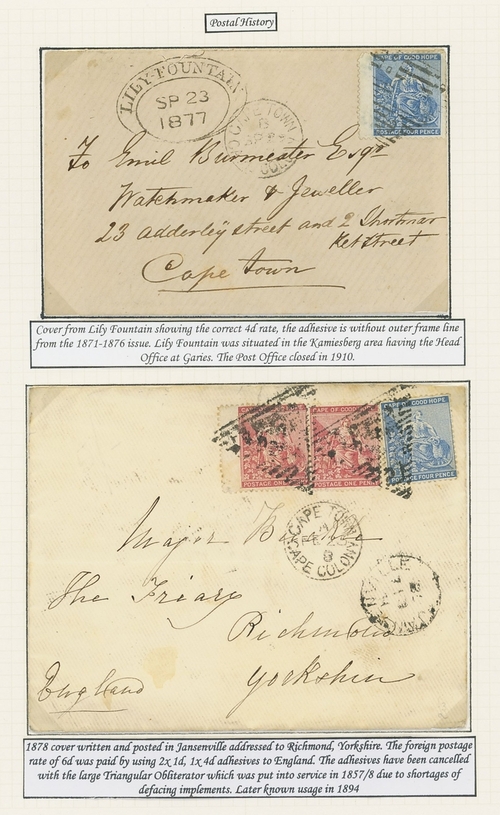 Postal History
LILY FOUNTAIN
SP 23
1877
CAPE OF GOOD HOPE
POSTAGE FOUR PENCE
To Emil Burmester Esqr
Watchmaker & Jeweller
23 Adderley street and 2 Shortmar
ket street
Cape Town
Cover from Lily Fountain showing the correct 4d rate, the adhesive is without outer frame line
from the 1871-1876 issue. Lily Fountain was situated in the Kamiesberg area having the Head
Office at Garies. The Post Office closed in 1910.
CAPE OF GOOD HOPE
POSTAGE ONE PENNY
CAPE OF GOOD HOPE
POSTAGE ONE PENNY
CAPE OF GOOD HOPE
POSTAGE FOUR PENCE
CAPE TOWN
CAPE COLONY
Major
The Friary
Richmond
Yorkshire
England
1878 cover written and posted in Jansenville addressed to Richmond, Yorkshire. The foreign postage
rate of 6d was paid by using 2x 1d, 1x 4d adhesives to England. The adhesives have been cancelled
with the large Triangular Obliterator which was put into service in 1857/8 due to shortages of
defacing implements. Later known usage in 1894